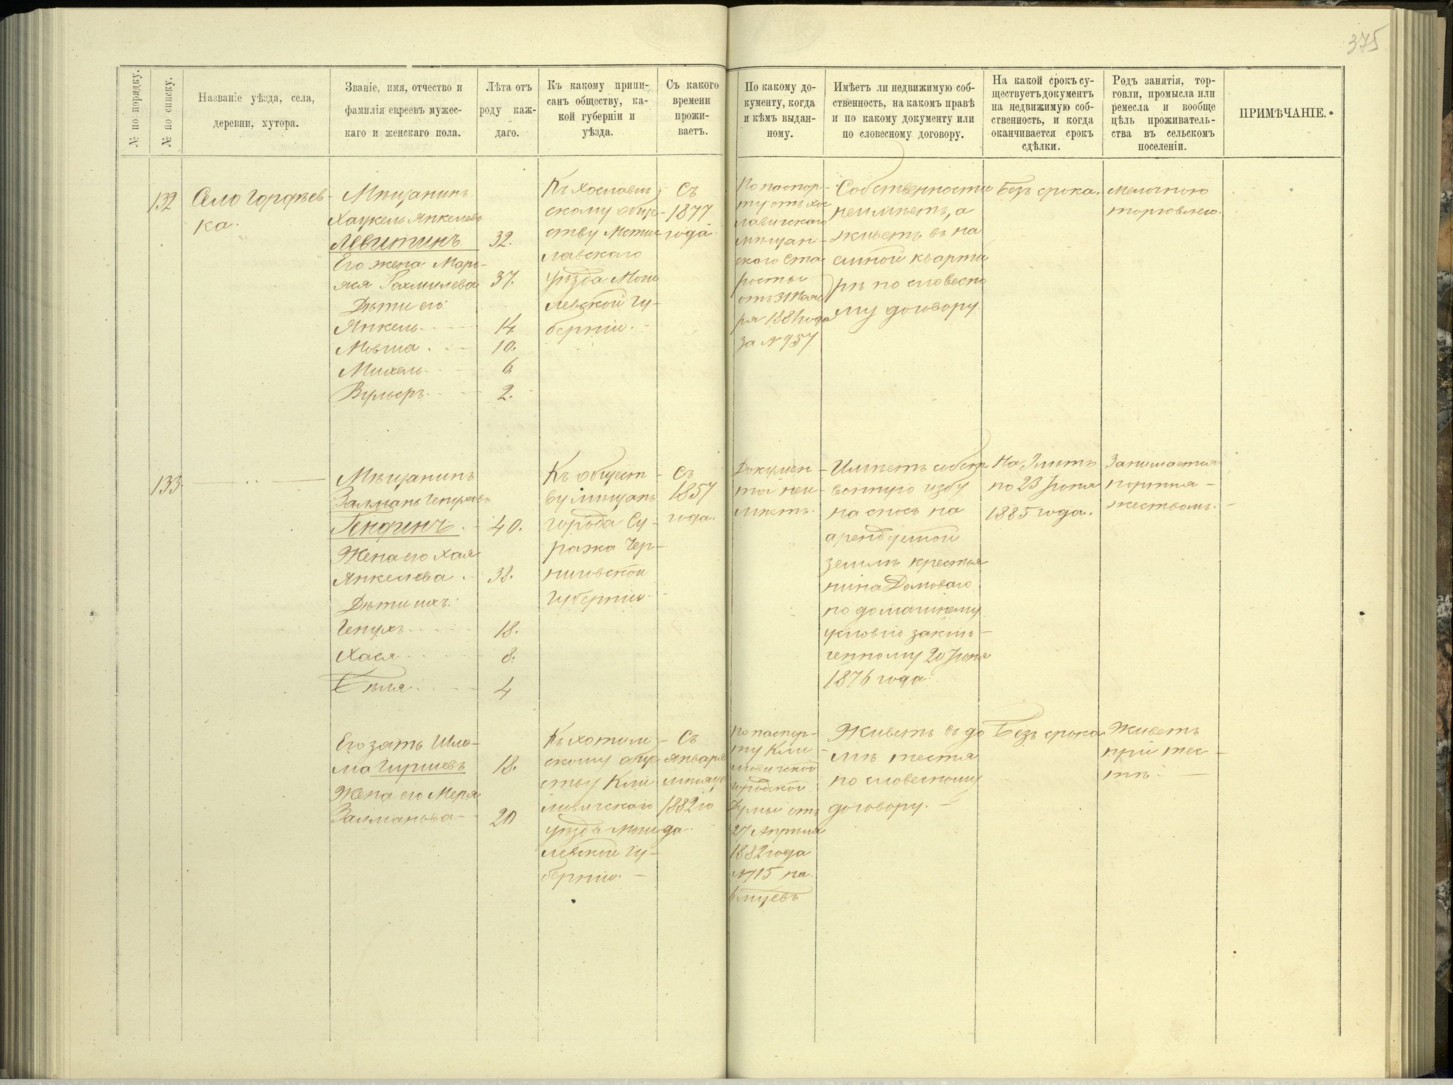 375
№ по порядку.
№ по списку.
Названіе уѣзда, села,
деревни, хутора.
Званіе, имя, отчество и
фамилія евреевъ мужес-
каго и женскаго пола.
Лѣта отъ
роду каж-
даго.
Къ какому припи-
санъ обществу, ка-
кой губерніи и
уѣзда.
Съ какого
времени
прожи-
ваетъ.
По какому до-
кументу, когда
и кѣмъ выдан-
ному.
Имѣетъ ли недвижимую соб-
ственность, на какомъ правѣ
и по какому документу или
по словесному договору.
На какой срокъ су-
ществуетъ документъ
на недвижимую соб-
ственность, и когда
оканчивается срокъ
сдѣлки.
Родъ занятія, тор-
говли, промысла или
ремесла и вообще
цѣль проживатель-
ства въ сельскомъ
поселеніи.
ПРИМѢЧАНІЕ.
132
Село Гордѣев-
ка.
Мѣщанинъ
Хацкель Янкелевъ
Левитинъ 32.
Его жена Мары-
яся Рахмилева 37.
Дѣти его:
Янкель 14
Мовша 10.
Михель 6
Вульфъ 2.
Къ Хослави-
скому обще-
ству Мстис
лавскаго
уѣзда Моги
левской Гу-
берніи.
Съ
1877
года
По паспор-
ту отъ Хос
лавичскаго
мѣщан-
скаго Ста
росты
отъ 31 Янва
ря 1881 года
за №957
Собственности
неимѣетъ, а
живетъ въ на
емной кварти
рѣ по словесно
му договору
Безъ срока.
мелочною
торговлею.
133
Мѣщанинъ
Залманъ Генуховъ
Гендинъ 40.
Жена его Хая
Янкелева 38.
Дѣти ихъ:
Генухъ 18.
Хася 8.
Бѣля 4
Къ общест-
ву мѣщанъ
города Су-
ража Чер-
ниговской
Губерніи
Съ
1857
года.
Докумен-
товъ неи-
мѣетъ.
Имѣетъ собст
венную избу
на сносъ на
арендуемой
земли крестья
нина Домоваго
по домашнему
условію заклю-
ченному 20 Іюня
1876 года
На 9 лѣтъ
по 23 Іюня
1885 года.
Занимается
портня-
жествомъ.
Его зять Шло-
ма Гуршевъ 18.
Жена его Меря
Залманова 20
Къ хотим-
скому обще-
ству Кли-
мовичскаго
уѣзда Моги
левской Гу-
берніи
Съ
Января
мѣсяца
1882 го
да.
По паспор-
ту Кли-
мовичской
городской
Думы отъ
27 Апрѣля
1882 года
№715 на
6 мѣсяцевъ
Живетъ въ до
мѣ тестя
по словесному
договору.
Безъ срока
Живетъ
при тес-
тѣ.